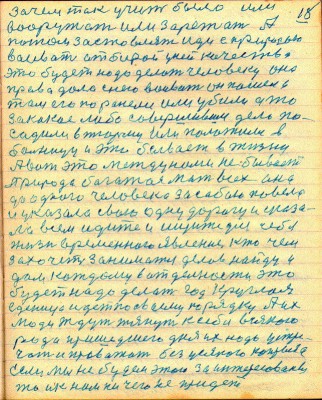 18
Зачем так учить было или
вооружать или заряжать А
потом заставлять иди с природою
воевать отбирай у ней качество
это будет надо делать человеку оно
права дало смело воевать он пошел а
там его поранели или убили а то
за какое либо совершившее дело по-
садили в тюрьму или положили в
больницу и это бывает в жизни
А вот это между ними не бывает
Природа богатая мать всех она
до одного человека за собою повела
и указала свою одну дорогу и сказа-
ла всем идите и ищите для себя
жизнь временного явления кто чем
захочет заниматься делом найду и
дам каждому в отдельности это
будет надо делать год круглой
единице идет по своему порядку А их
люди ждут тянут к себе всякого
рода пришедшего дня их надо встре-
чать и провожать без всякого
если мы не будем этого заинтересованы
то к нам ничего не придет